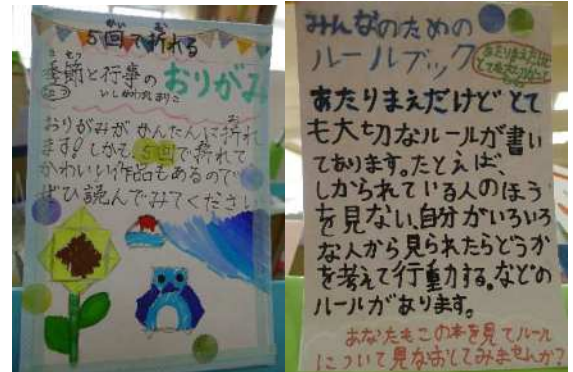 5回で折れる
季節と行事の
おりがみ
いしかわまりこ
おりがみがかんたんに折れ
ます!しかも、5回で折れて
かわいい作品もあるので
ぜひ読んでみてください
みんなのための
ルールブック
あたりまえだけど
とても大切なこと
あたりまえだけどとて
も大切なルールが書い
てあります。たとえば、
しかられている人のほう
を見ない、自分がいろいろ
な人から見られたらどうか
を考えて行動する。などの
ルールがあります。
あなたもこの本を見てルール
について見なおしてみませんか?